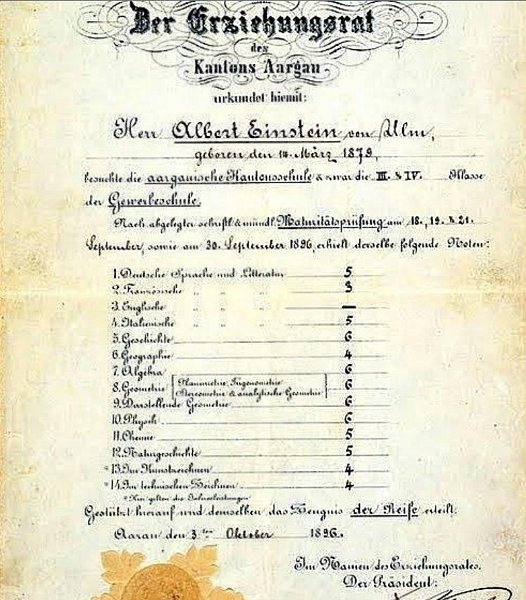 Der Erziehungsrat
des
Kantons Aargau
urkundet hiemit:
Herr Albert Einstein von Ulm,
geboren den 14. März 1879,
besuchte die aargauische Kantonsschule & zwar die III. & IV. Klasse
der Gewerbeschule.
Nach abgelegter schriftl. & mündl. Maturitätsprüfung am 18., 19. & 21.
September, sowie am 30. September 1896, erhielt derselbe folgende Noten:
1. Deutsche Sprache und Litteratur 5
2. Französische " " " 3
3. Englische " " " —
4. Italienische " " " 5
5. Geschichte 6
6. Geographie 4
7. Algebra 6
8. Geometrie [Planimetrie, Trigonometrie 6
Stereometrie & analytische Geometrie]
9. Darstellende Geometrie 6
10. Physik 6
11. Chemie 5
12. Naturgeschichte 5
*13. Im Kunstzeichnen 4
*14. Im technischen Zeichnen 4
* Hier gelten die Jahresleistungen
Gestützt hierauf wird demselben das Zeugnis der Reife erteilt.
Aarau den 3ten Oktober 1896.
Im Namen des Erziehungsrates,
Der Präsident: